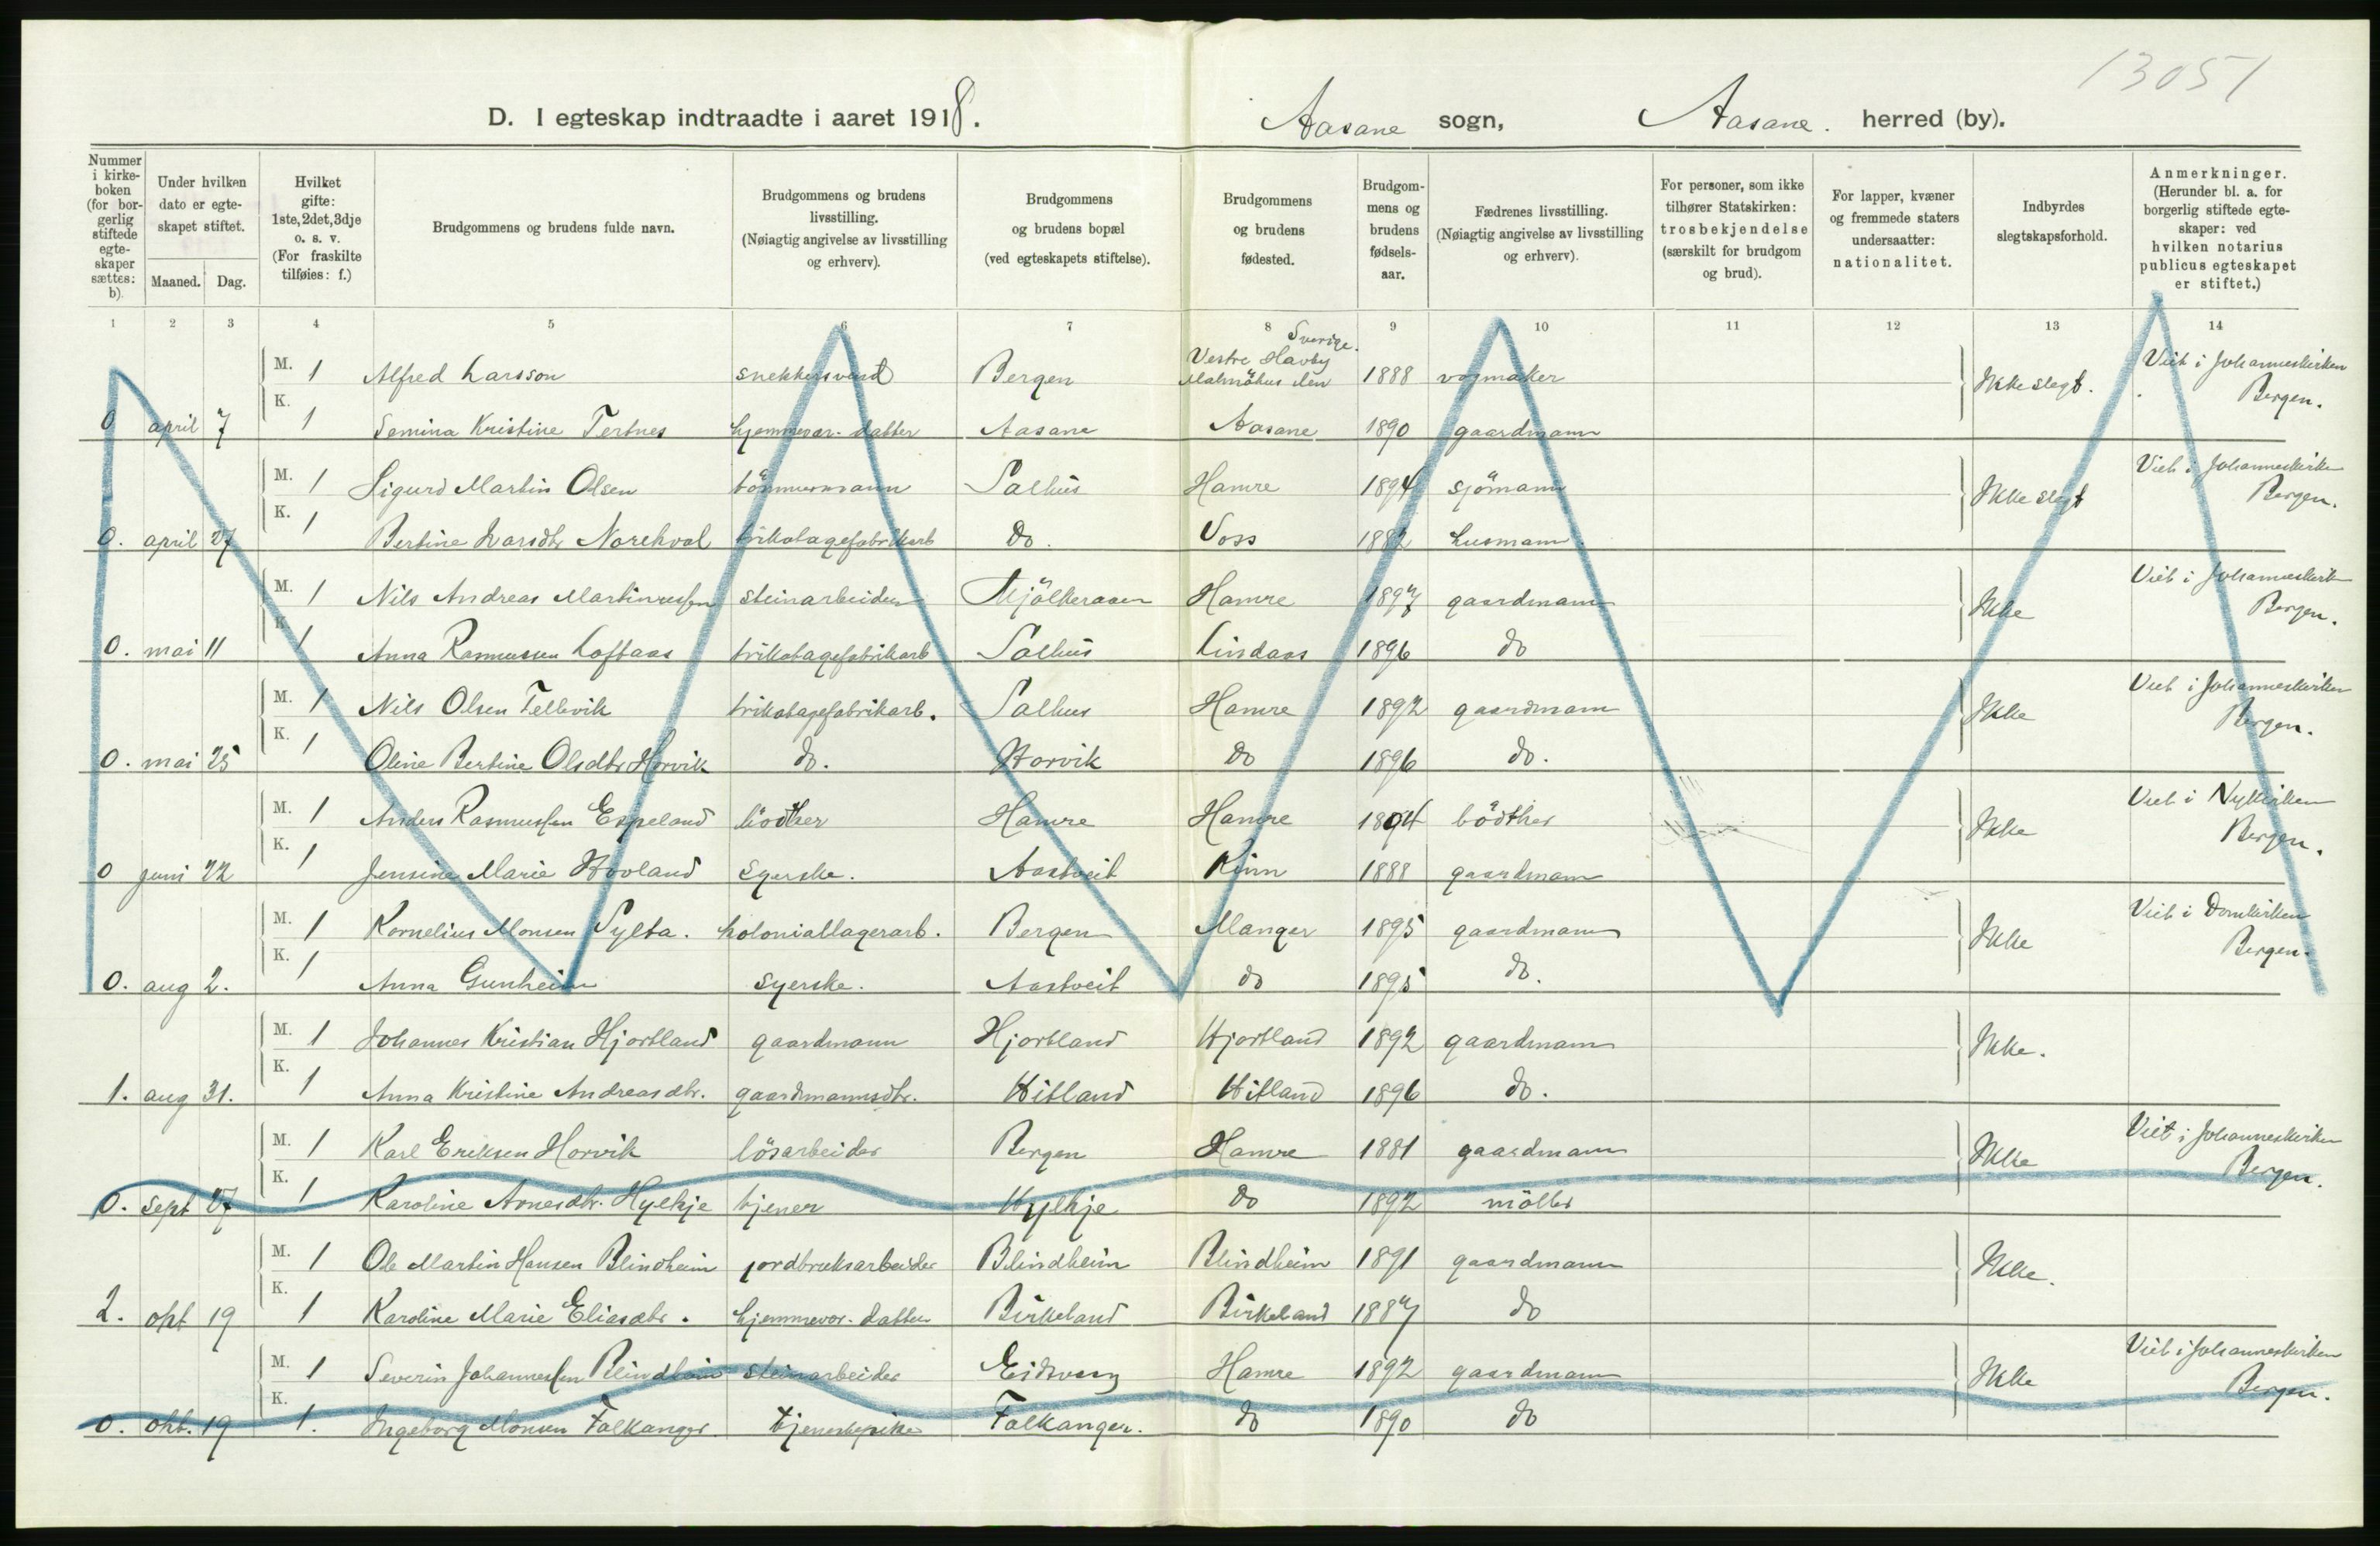 13051
D. I egteskap indtraadte i aaret 1918.
Aasane sogn, Aasane. herred (by).
Nummer i kirkeboken (for borgerlig stiftede egteskaper sættes: b).
Under hvilken dato er egteskapet stiftet.
Maaned. Dag.
Hvilket gifte: 1ste, 2det, 3dje o. s. v. (For fraskilte tilføies: f.)
Brudgommens og brudens fulde navn.
Brudgommens og brudens livsstilling. (Nøiagtig angivelse av livsstilling og erhverv).
Brudgommens og brudens bopæl (ved egteskapets stiftelse).
Brudgommens og brudens fødested.
Brudgommens og brudens fødselsaar.
Fædrenes livsstilling. (Nøiagtig angivelse av livsstilling og erhverv).
For personer, som ikke tilhører Statskirken: trosbekjendelse (særskilt for brudgom og brud).
For lapper, kvæner og fremmede staters undersaatter: nationalitet.
Indbyrdes slegtskapsforhold.
Anmerkninger. (Herunder bl. a. for borgerlig stiftede egteskaper: ved hvilken notarius publicus egteskapet er stiftet.)
1 2 3 4 5 6 7 8 9 10 11 12 13 14
M. 1 Alfred Larsson snekkersvend Bergen Vestre Havby Malmöhus len Sverige. 1888 vognmaker Ikke slegt. Viet i Johanneskirken Bergen.
0 april 7 K. 1 Semina Kristine Tertnes hjemmevær. datter Aasane Aasane 1890 gaardmann
M. 1 Sigurd Martin Olsen tömmermann Salhus Hamre 1894 sjömann Ikke slegt Viet i Johanneskirken Bergen.
0. april 27 K. 1 Bertine Larsdtr Norekval trikotagefabrikarb Do. Voss 1882 husmann.
M. 1 Nils Andreas Martinussen steinarbeider Mjölkeraaen Hamre 1897 gaardmann Ikke Viet i Johanneskirken Bergen.
0. mai 11 K 1 Anna Rasmussen Loftaas trikotagefabrikarb Salhus Lindaas 1896 do
M. 1 Nils Olsen Tellevik trikotagefabrikarb. Salhus Hamre 1892 gaardmann Ikke Viet i Johanneskirken Bergen.
0. mai 25 K. 1 Oline Bertine Olsdtr Horvik do. Horvik do 1896 do.
M. 1 Anders Rasmussen Espeland bödker Hamre Hamre 1894 bödker Ikke Viet i Nykirken Bergen.
0 juni 22 K. 1 Jensine Marie Hovland syerske. Aastveit Kinn 1888 gaardmann
M. 1 Kornelius Monsen Sylta. koloniallagerarb. Bergen Manger 1895 gaardmann Ikke Viet i Domkirken Bergen.
0. aug 2. K. 1 Anna Gunheim syerske. Aastveit do 1895 do.
M. 1 Johannes Kristian Hjortland gaardmann Hjortland Hjortland 1892 gaardmann Ikke.
1. aug 31. K. 1 Anna Kristine Andreasdtr. gaardmannsdtr. Hitland Hitland 1896 do.
M. 1 Karl Eriksen Horvik lösarbeider Bergen Hamre 1881 gaardmann Ikke Viet i Johanneskirken Bergen.
0. sept 27 K. 1 Karoline Arnesdtr. Hylkje tjener Hylkje do 1892 möller
M. 1 Ole Martin Hansen Blindheim jordbruksarbeider Blindheim Blindheim 1891 gaardmann Ikke.
2. okt 19 K. 1 Karoline Marie Eliasdtr. hjemmevær. datter Birkeland Birkeland 1887 do
M. 1 Severin Johannessen Blindheim steinarbeider Eidsvaag Hamre 1892 gaardmann Ikke Viet i Johanneskirken Bergen.
0. okt. 19 K. 1. Ingeborg Monsen Falkanger tjenestepike Falkanger. do 1890 do